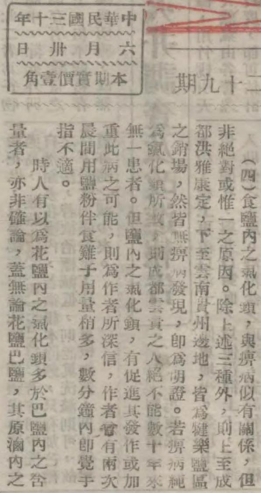 中華民國三十年
六月卅日
本期實價壹角
二十九期
(四)食鹽內之氯化鋇,與痹病似有關係,但
非絕對或惟一之原因。除上述三種外,則上至成
都洪雅康定,下至雲南貴州邊地,皆爲犍樂鹽區
之銷場,然皆無痹病發現,卽爲明證。若痹病純
爲氯化鋇所致,則成都雲貴之人絕不能數十年來
無一患者。但鹽內之氯化鋇,有促進其發作或加
重此病之可能,則爲作者所深信,作者曾有兩次
晨間用鹽粉伴食雞子用量稍多,數分鐘內卽覺手
指不適。
時人有以爲花鹽內之氯化鋇多於巴鹽內之含
量者,亦非確論,蓋無論花鹽巴鹽,其原滷內之